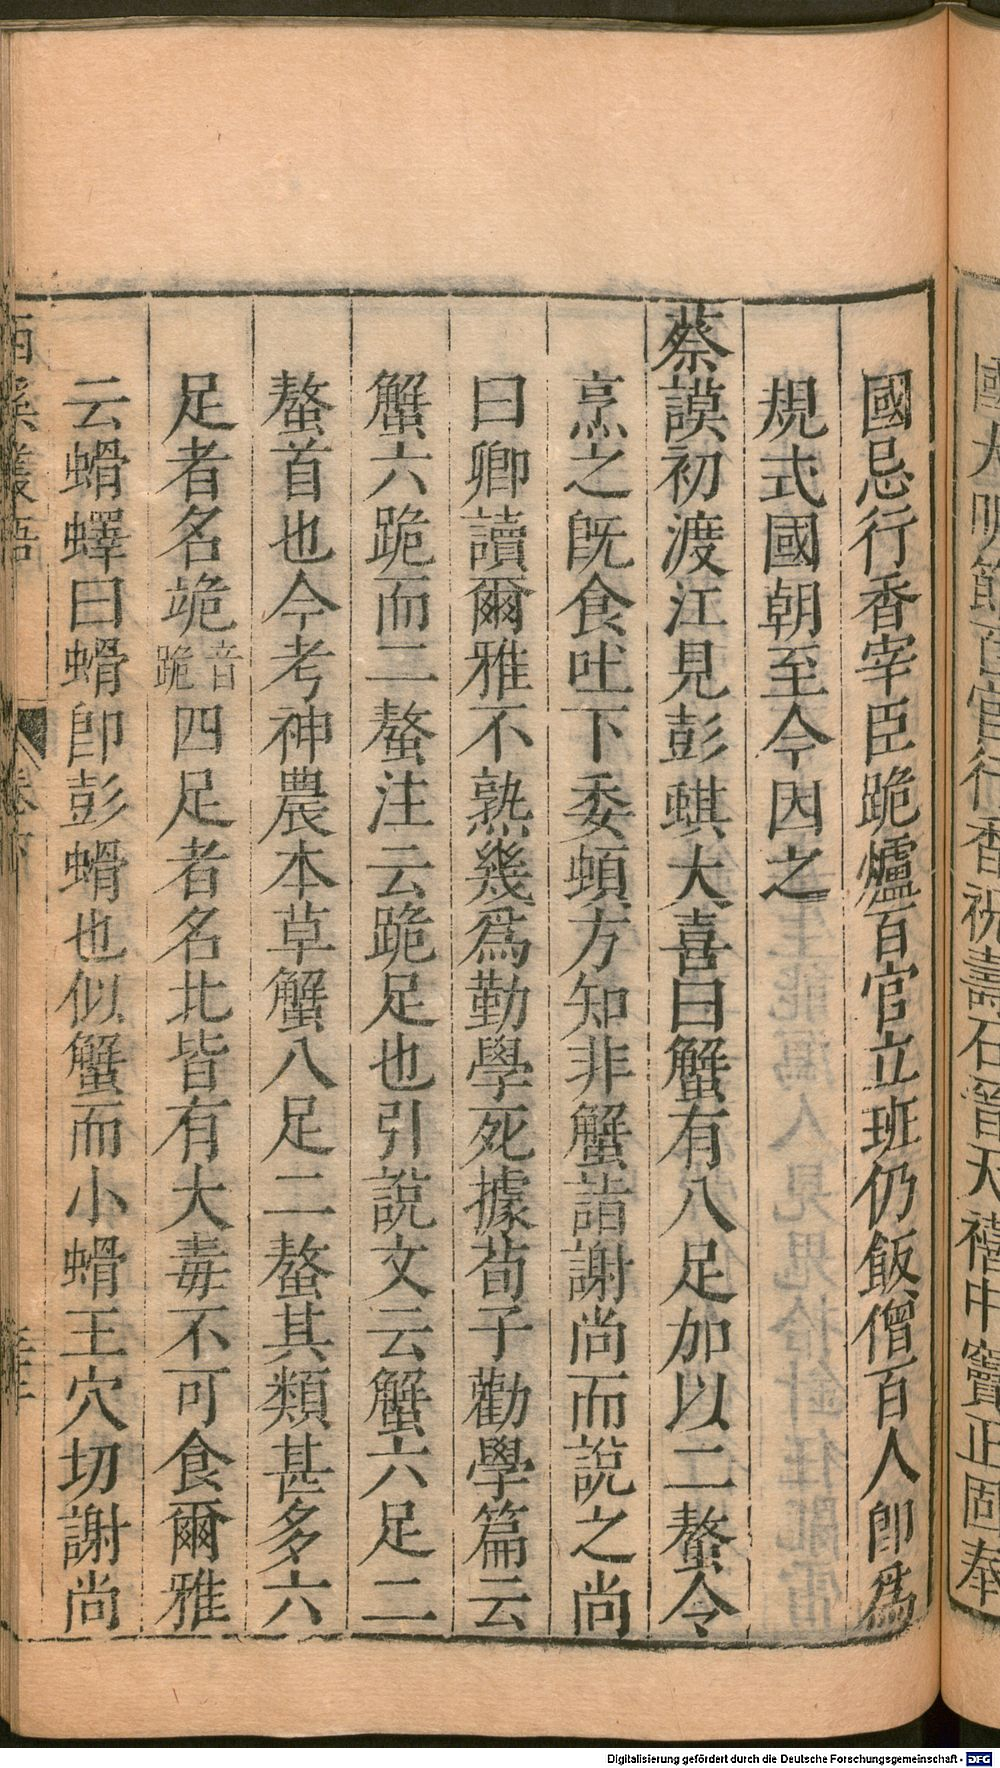 國大明節百官行香祝壽石晉天禧中竇正固奉
國忌行香宰臣跪爐百官立班仍飯僧百人卽爲
規式國朝至今因之
蔡謨初渡江見彭蜞大喜曰蟹有八足加以二螯令
烹之旣食吐下委頓方知非蟹詣謝尚而說之尚
曰卿讀爾雅不熟幾爲勤學死據荀子勸學篇云
蟹六跪而二螯注云跪足也引說文云蟹六足二
螯首也今考神農本草蟹八足二螯其類甚多六
足者名跪音跪四足者名北皆有大毒不可食爾雅
云螖蠌曰螖卽彭螖也似蟹而小螖王穴切謝尚
西溪叢語 卷下
Digitalisierung gefördert durch die Deutsche Forschungsgemeinschaft - DFG